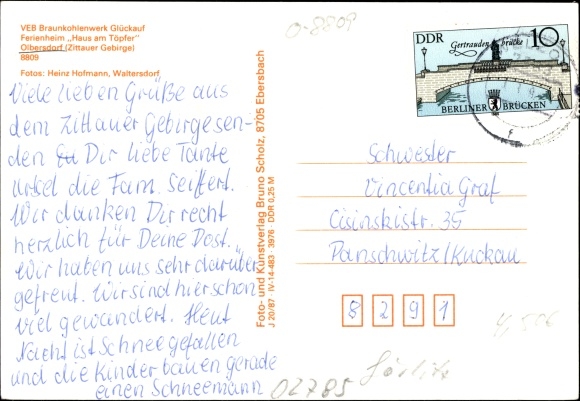 VEB Braunkohlenwerk Glückauf
Ferienheim „Haus am Töpfer"
Olbersdorf (Zittauer Gebirge)
8809
Fotos: Heinz Hofmann, Waltersdorf
Viele lieben Grüße aus
dem Zittauer Gebirge sen-
den Dir liebe Tante
Ursel die Fam. Seiffert.
Wir danken Dir recht
herzlich für Deine Post.
Wir haben uns sehr darüber
gefreut. Wir sind hier schon
viel gewandert. Heut
Nacht ist Schnee gefallen
und die Kinder bauen gerade
einen Schneemann
Foto- und Kunstverlag Bruno Scholz, 8705 Ebersbach
J 20/87 · IV-14-483 · 3976 · DDR 0,25 M
0-8809
DDR
10
Gertraudenbrücke
BERLINER BRÜCKEN
Schwester
Vincentia Graf
Cisinskistr. 35
Panschwitz/Kuckau
8291
02785 Görlitz